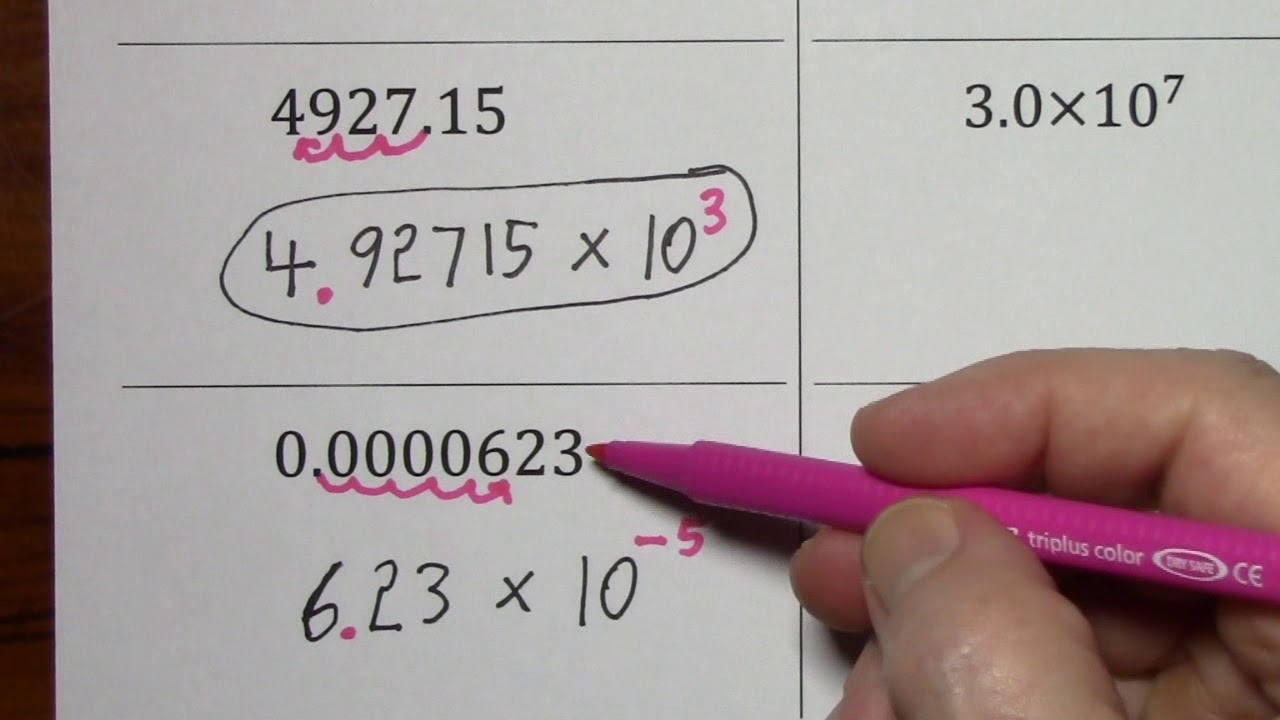 4927.15
4.92715 × 10³
3.0×10⁷
0.0000623
6.23 × 10⁻⁵
triplus color DRY SAFE CE